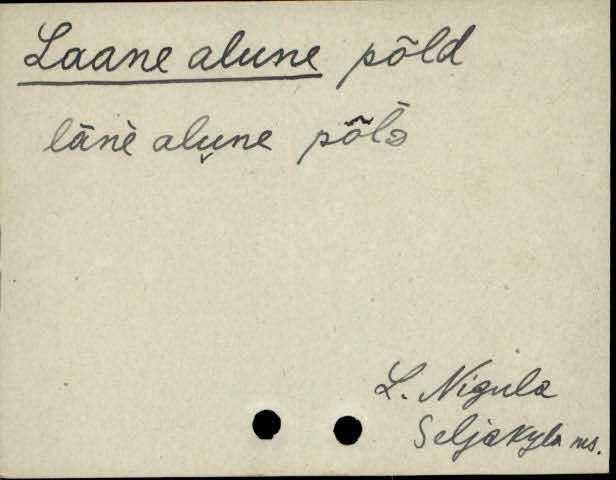 Laane alune põld
lānè alune pō̃lᴅ̀
L. Nigula
Seljaküla ms.